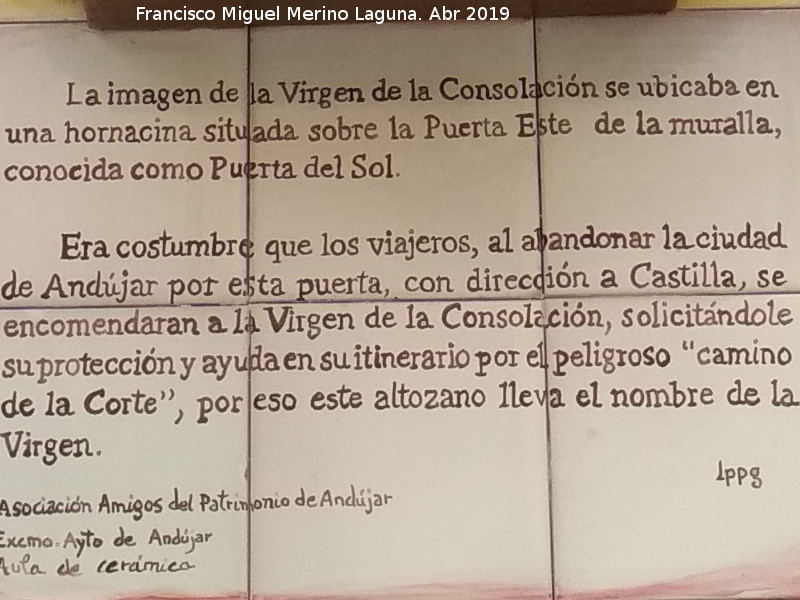 Francisco Miguel Merino Laguna. Abr 2019
La imagen de la Virgen de la Consolación se ubicaba en
una hornacina situada sobre la Puerta Este de la muralla,
conocida como Puerta del Sol.
Era costumbre que los viajeros, al abandonar la ciudad
de Andújar por esta puerta, con dirección a Castilla, se
encomendaran a la Virgen de la Consolación, solicitándole
su protección y ayuda en su itinerario por el peligroso “camino
de la Corte”, por eso este altozano lleva el nombre de la
Virgen.
lppg
Asociación Amigos del Patrimonio de Andújar
Excmo. Ayto de Andújar
Aula de cerámica